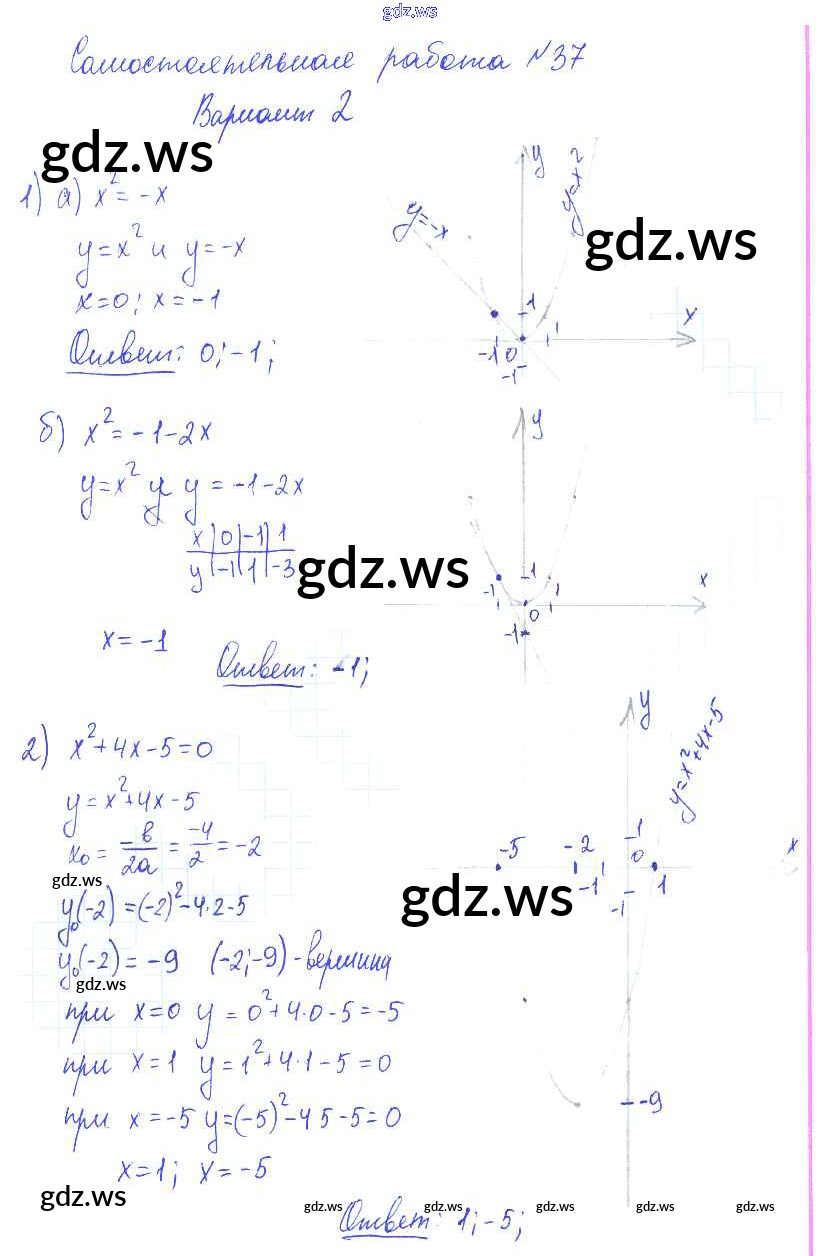 gdz.ws
Самостоятельная работа №37
Вариант 2
gdz.ws
1) а) x² = -x
y = x² и y = -x
x = 0; x = -1
Ответ: 0; -1;
y
y=-x
y=x²
gdz.ws
1
x
-1 0 1
-1
б) x² = -1-2x
y = x² и y = -1-2x
x | 0 | -1 | 1
y | -1 | 1 | -3
gdz.ws
x = -1
Ответ: -1;
y
1
x
-1 0 1
-1
2) x² + 4x - 5 = 0
y = x² + 4x - 5
x₀ = -в/2a = -4/2 = -2
gdz.ws
y₀(-2) = (-2)² - 4·2 - 5
y₀(-2) = -9 (-2; -9) - вершина
gdz.ws
при x = 0 y = 0² + 4·0 - 5 = -5
при x = 1 y = 1² + 4·1 - 5 = 0
при x = -5 y = (-5)² - 4 5 - 5 = 0
x = 1; x = -5
y
y=x²+4x-5
1
-5 -2 0 x
-1 1
-1
gdz.ws
-9
gdz.ws
gdz.ws gdz.ws gdz.ws gdz.ws gdz.ws
Ответ: 1; -5;